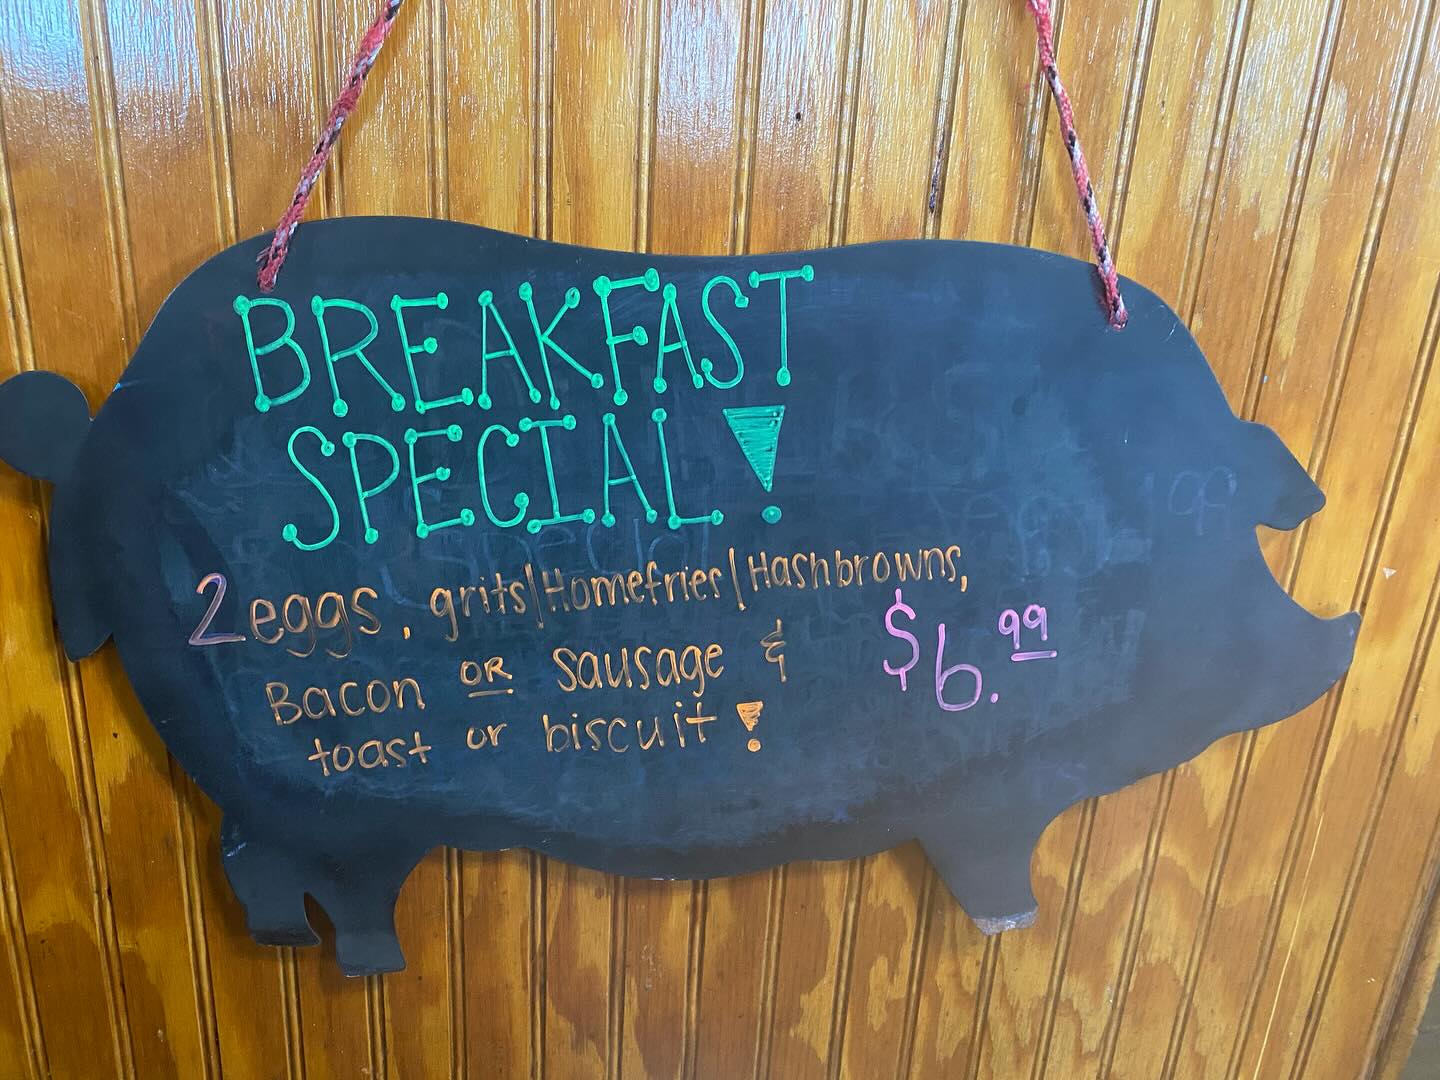 BREAKFAST
SPECIAL!
2 eggs, grits/Homefries/Hashbrowns,
Bacon OR sausage &
toast or biscuit!
$6.99